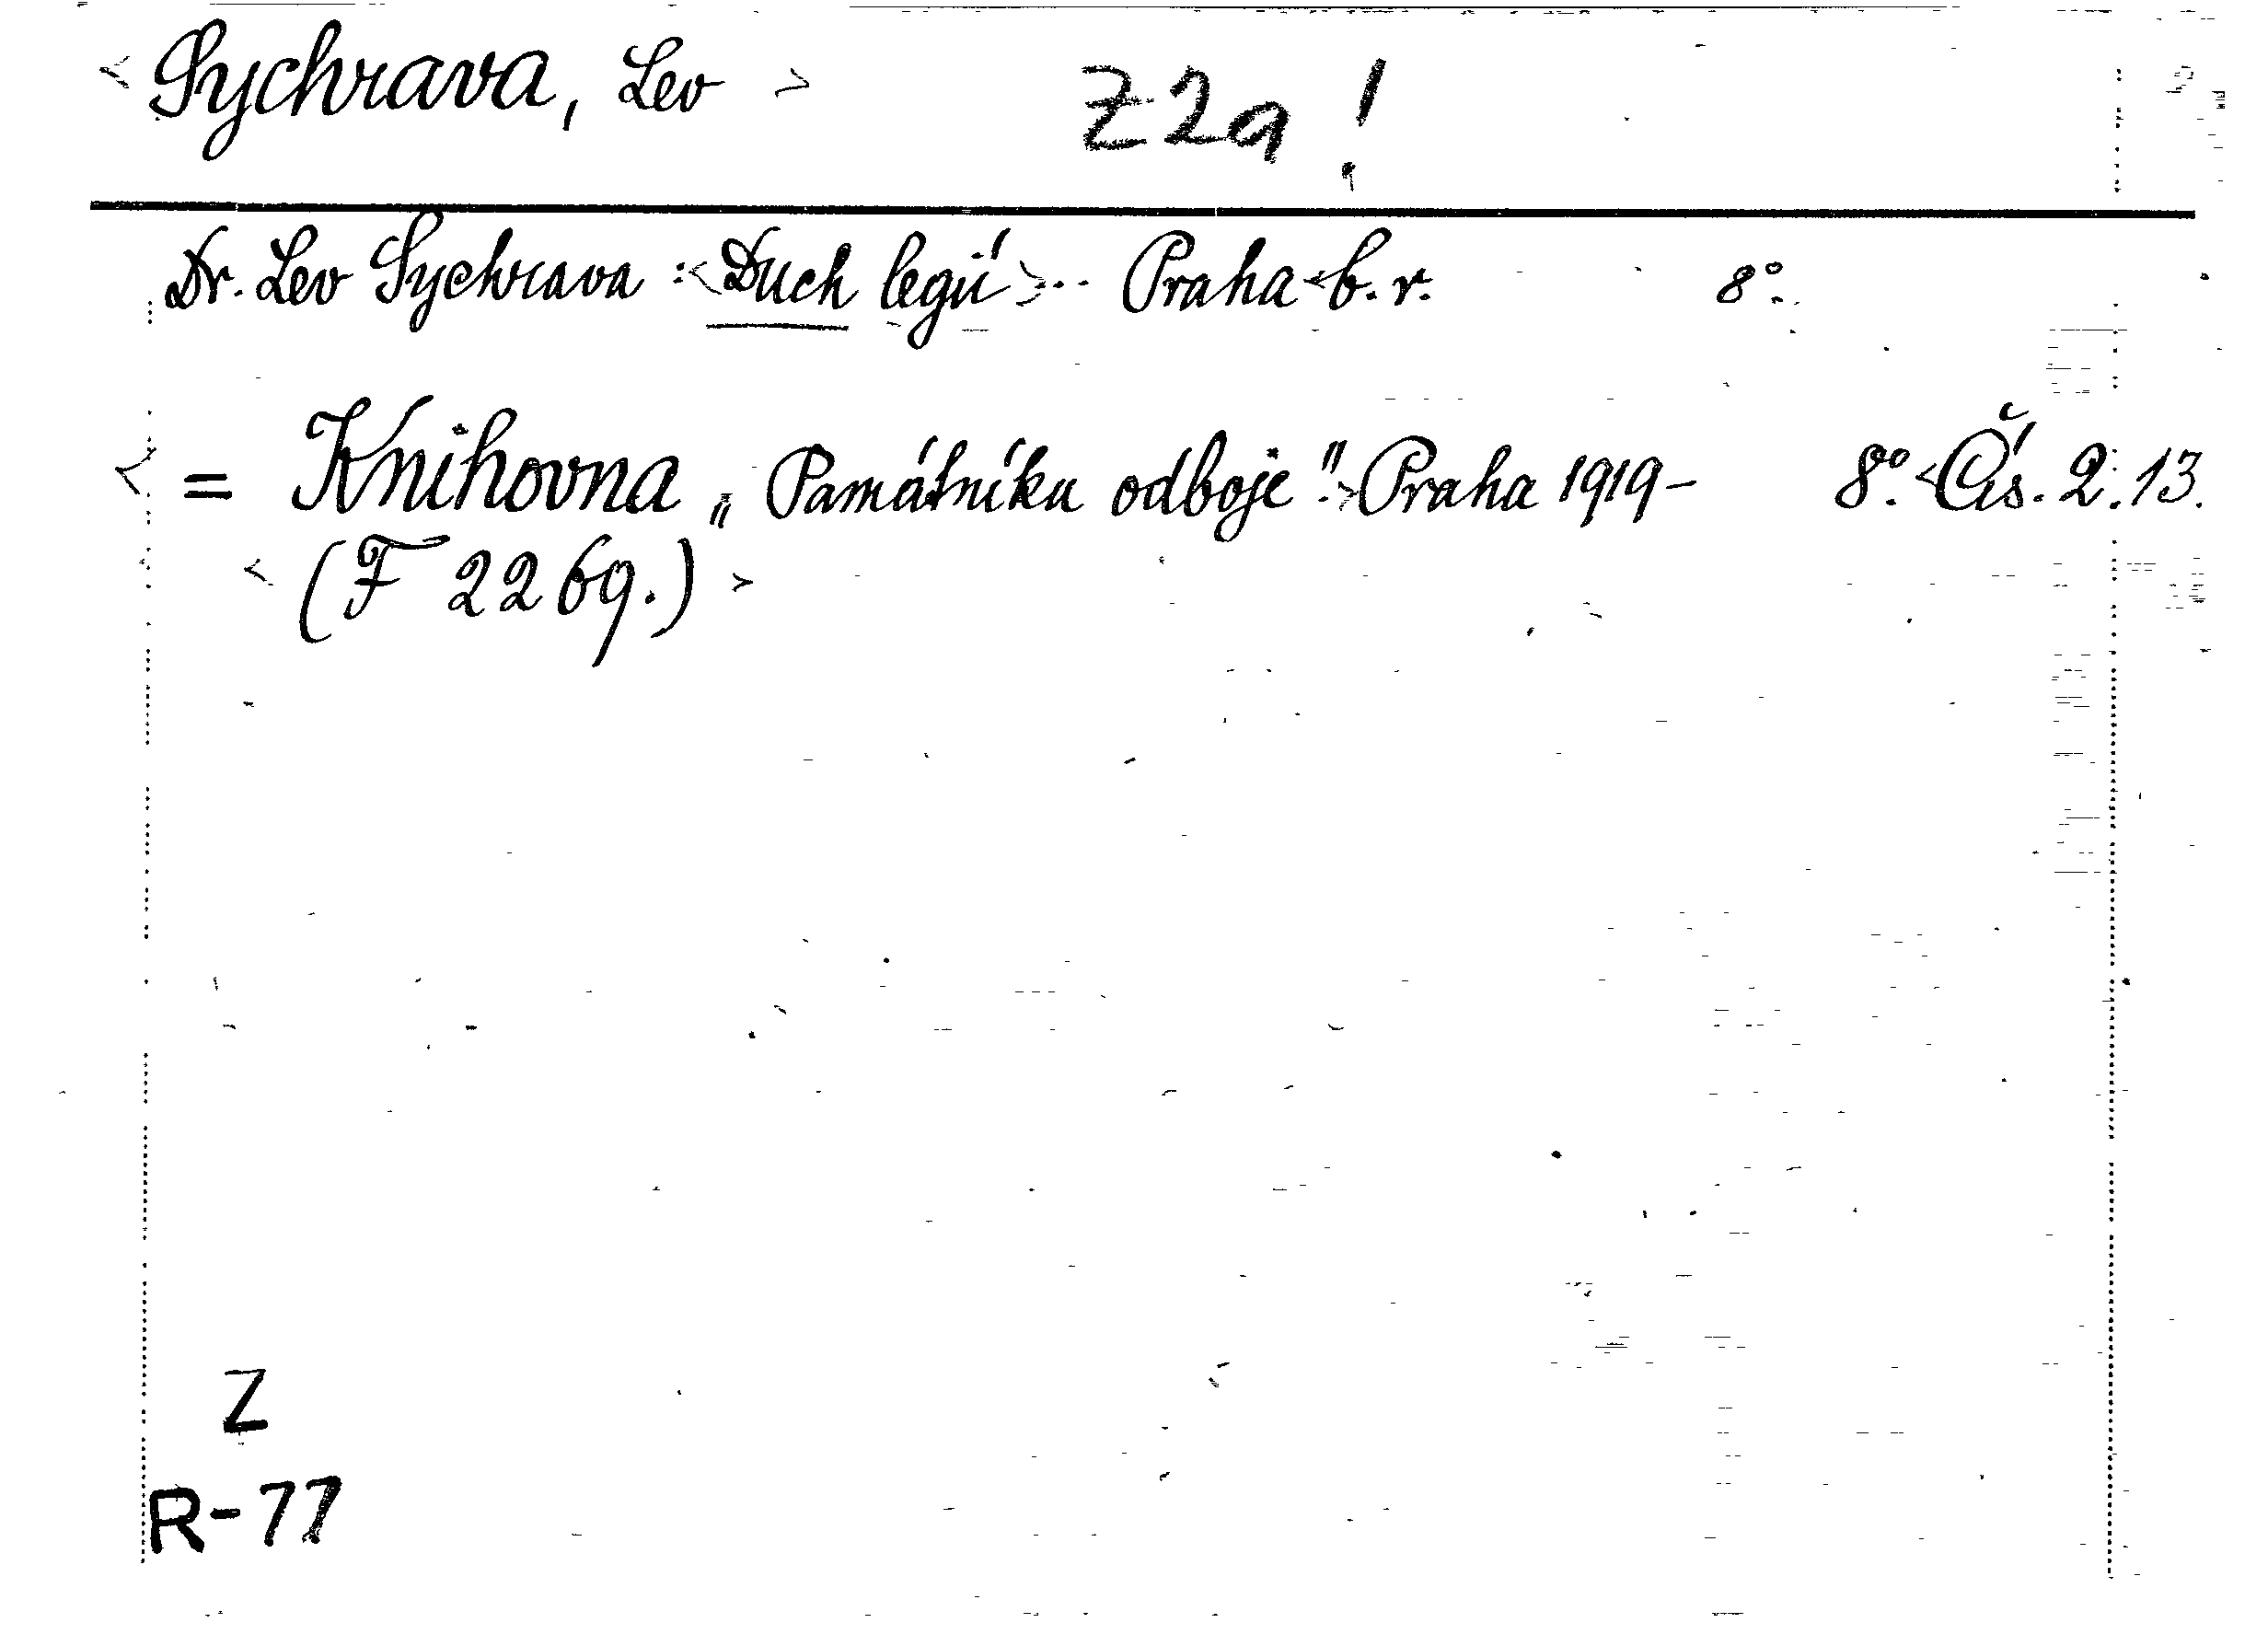 < Sychrava, Lev > Z2a!
Dr. Lev Sychrava: <Duch legií>.. Praha <b. r. 8°.
< = Knihovna „Památníku odboje". > Praha 1919- 8°. <Čís. 2. 13.
< (F 2269.) >
Z
R-77